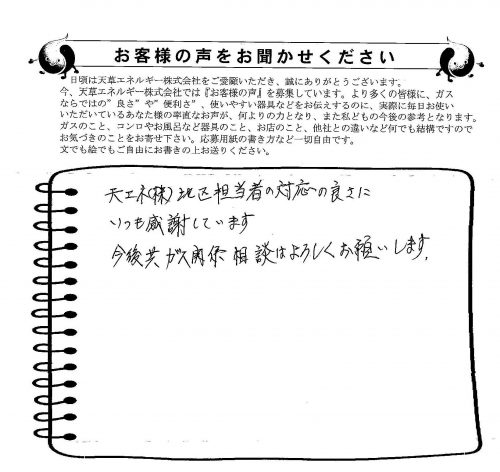 お客様の声をお聞かせください
日頃は天草エネルギー株式会社をご愛顧いただき、誠にありがとうございます。
今、天草エネルギー株式会社では『お客様の声』を募集しています。より多くの皆様に、ガス
ならではの”良さ”や”便利さ”、使いやすい器具などをお伝えするのに、実際に毎日お使い
いただいているあなた様の率直なお声が、何よりの力となり、また私どもの今後の参考となります。
ガスのこと、コンロやお風呂など器具のこと、お店のこと、他社との違いなど何でも結構ですので
お気づきのことをお寄せ下さい。応募用紙の書き方など一切自由です。
文でも絵でもご自由にお書きの上お送りください。
天エネ(株)地区担当者の対応の良さに
いつも感謝しています
今後共ガス関係相談はよろしくお願いします。